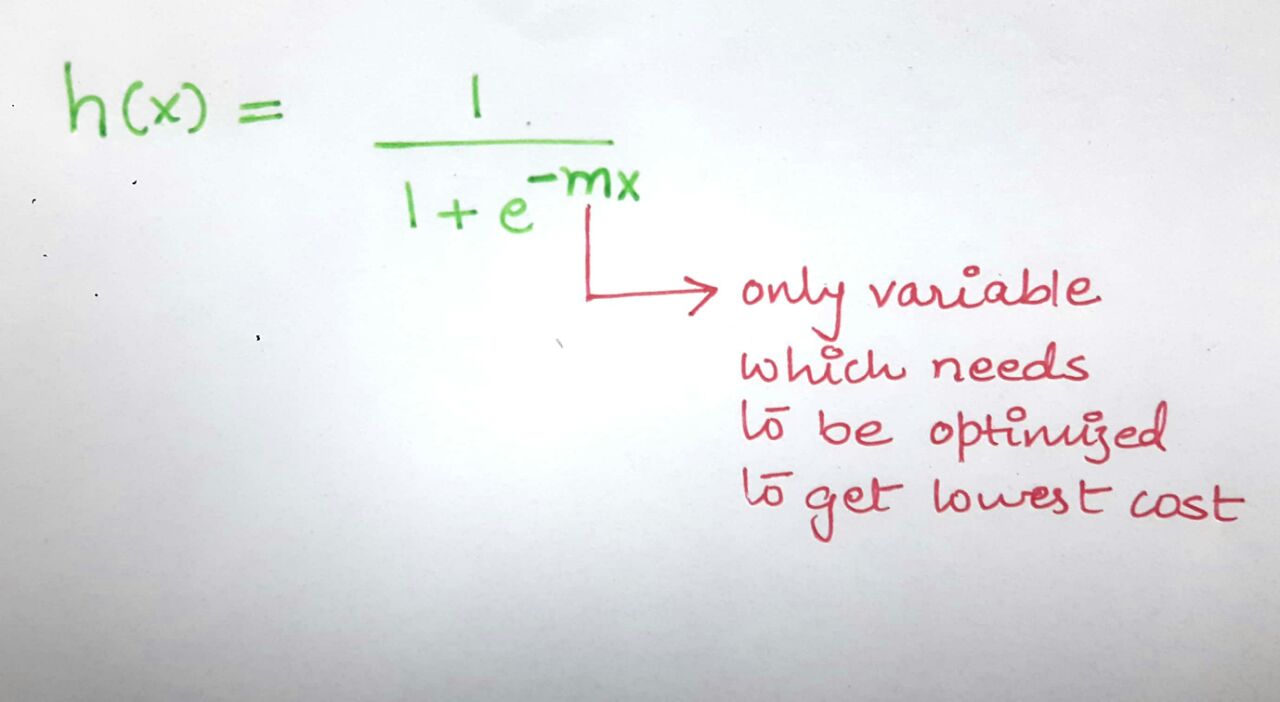 h(x) = 1 / (1 + e^{-mx})
only variable
which needs
to be optimized
to get lowest cost